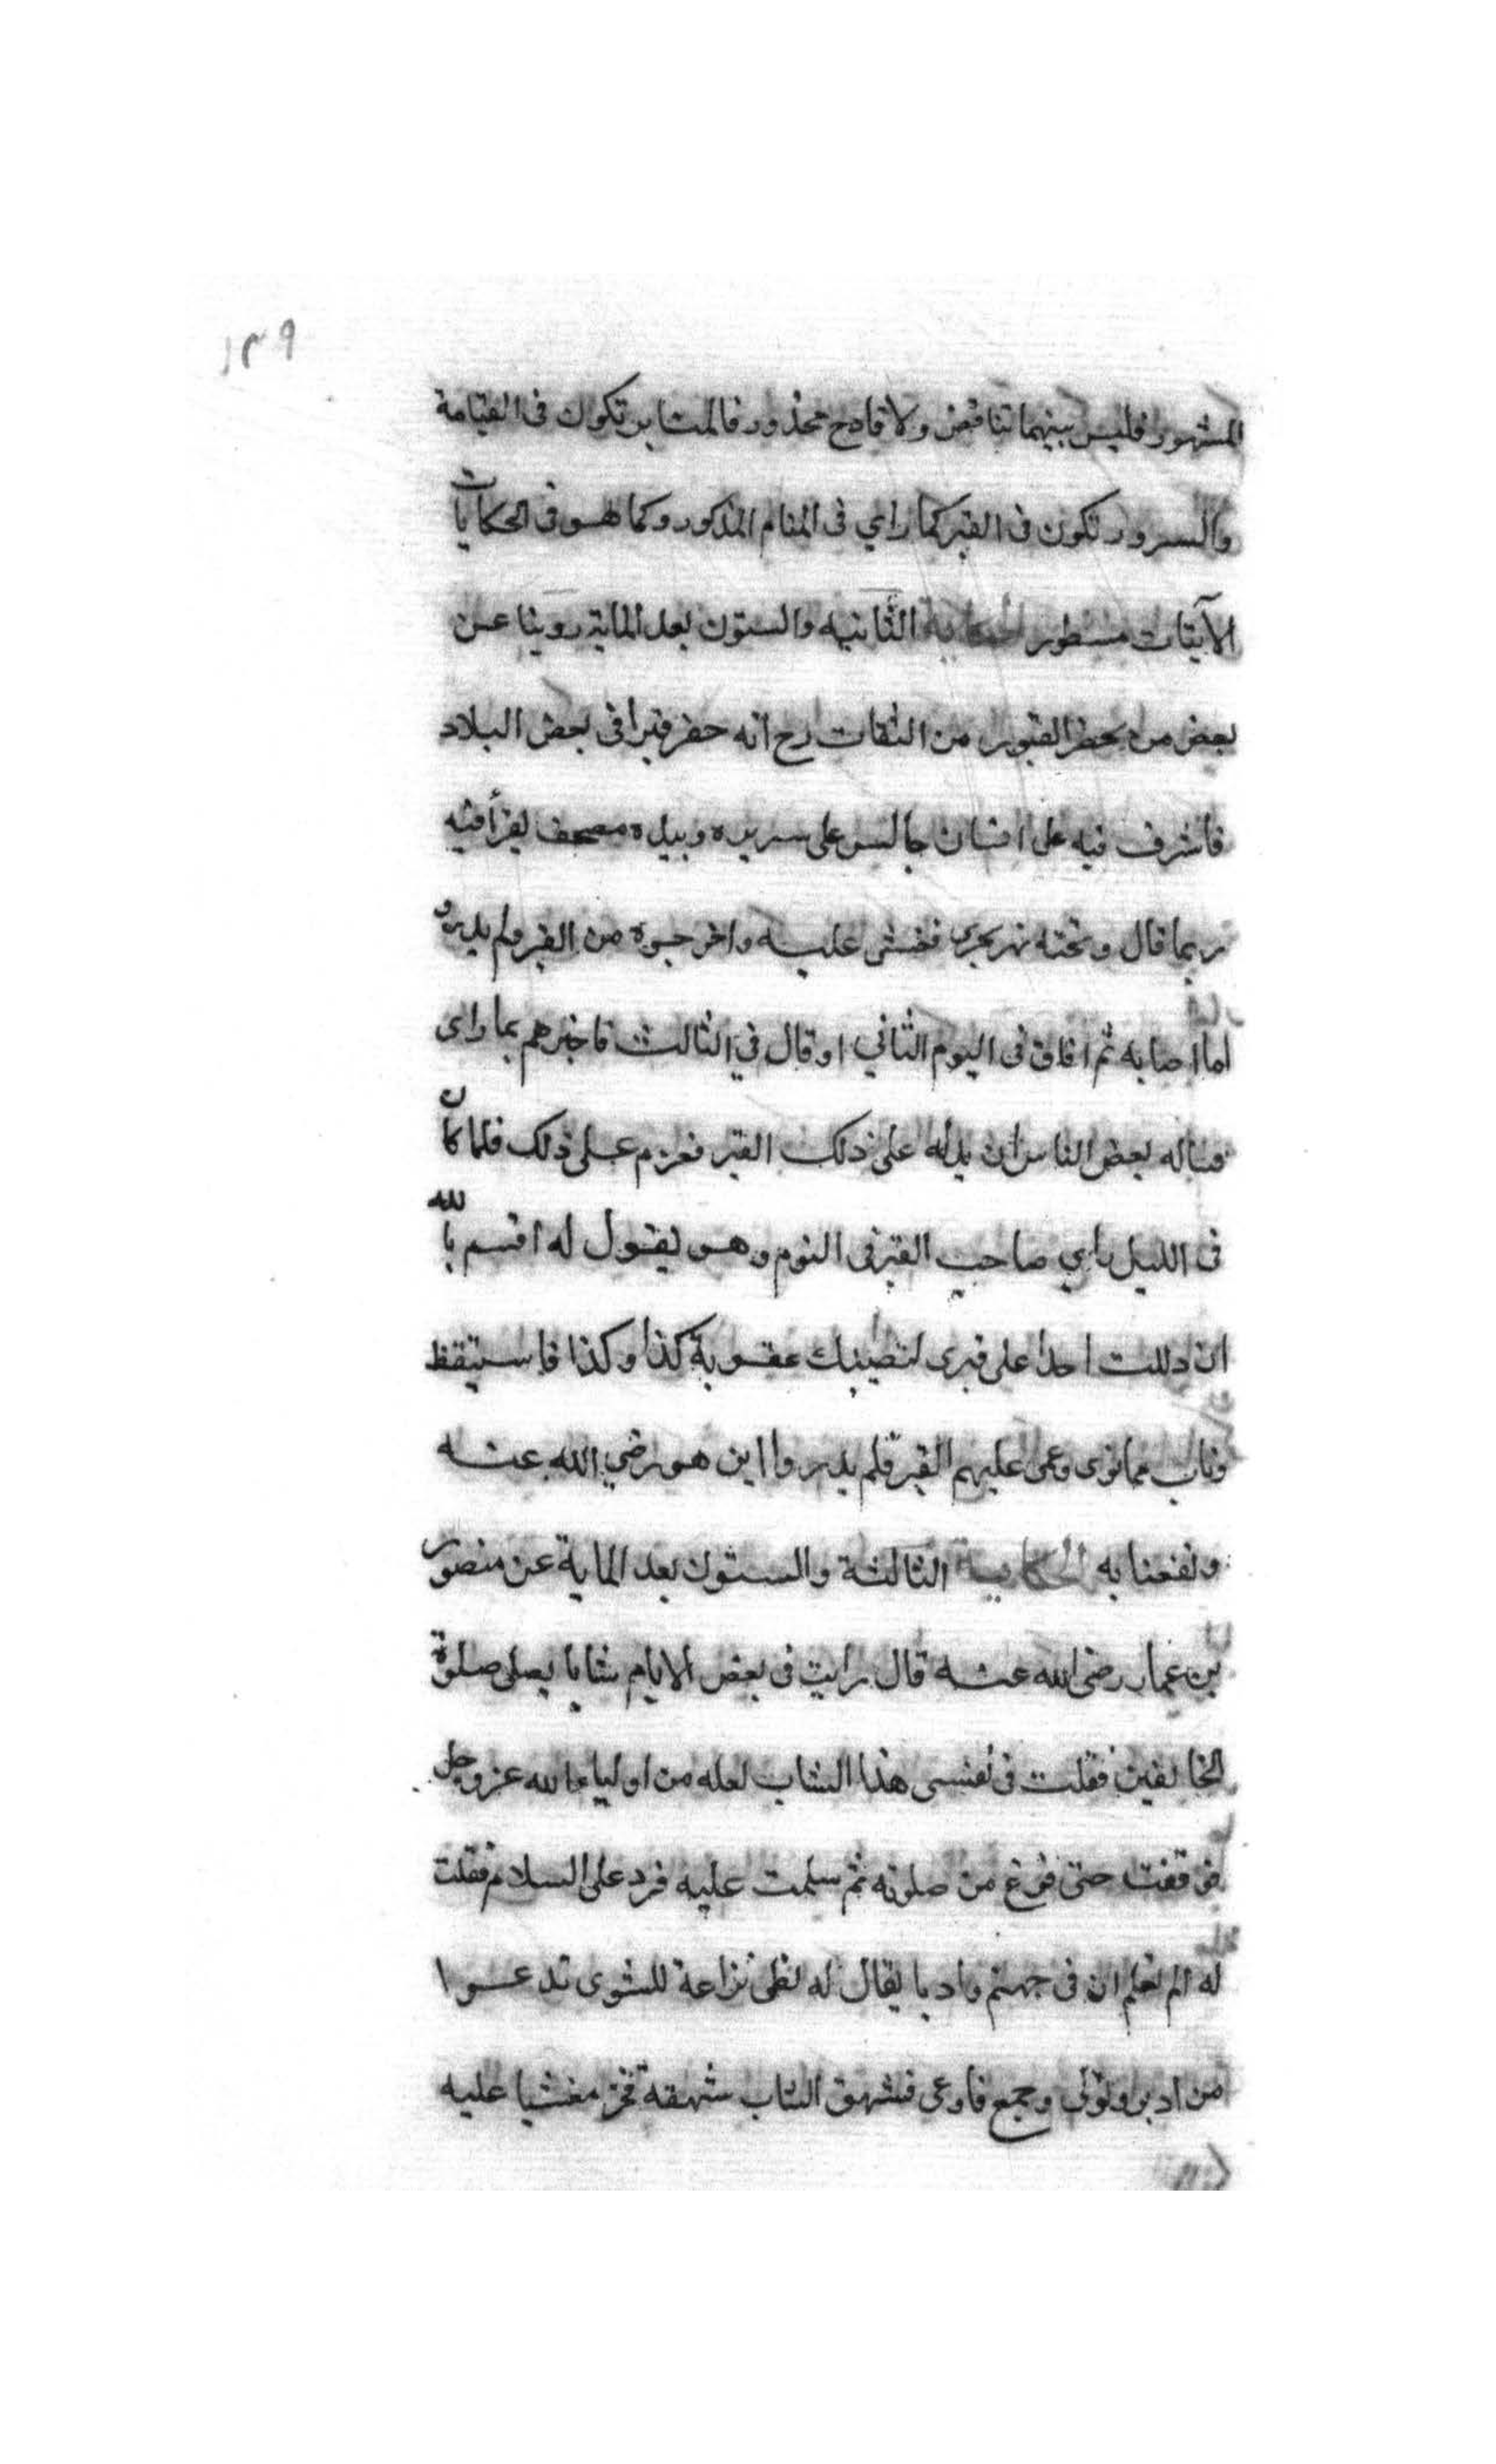 ١٣٩
المشهور فليس بينهما تناقض ولا قادح محذور فالمنابر تكون فى القيامة
والسرور تكون فى القبر كما راى فى المنام المذكور وكما هو فى الحكايات
الآتيات مسطور الحكاية الثانيه والستون بعد الماية روينا عن
بعض من يحفر القبور من الثقات رح انه حفر قبرا فى بعض البلاد
فاشرف فيه على انسان جالس على سريره وبيده مصحف يقرأ فيه
ربما قال وتحته نهر يجرى فغشى عليه واخرجوه من القبر ولم يدروا
اما اصابه ثم افاق فى اليوم الثاني او قال في الثالث فاخبرهم بما راى
فساله بعض الناس ان يدله على ذلك القبر فعزم على ذلك فلما كان
فى الليل راي صاحب القبر فى النوم وهو يقول له اقسم بالله
ان دللت احدا على قبرى لتصيبك عقوبة كذا وكذا فاستيقظ
وتاب مما نوى وعمى عليهم القبر فلم يدروا اين هو رضي الله عنه
ونفعنا به الحكاية الثالثة والستون بعد الماية عن منصور
بن عمار رضى الله عنه قال رايت فى بعض الايام شابا يصلى صلوة
الخايفين فقلت فى نفسى هذا الشاب لعله من اولياء الله عز وجل
فوقفت حتى فرغ من صلوته ثم سلمت عليه فرد على السلام فقلت
له الم تعلم ان فى جهنم واديا يقال له لظى نزاعة للشوى تدعوا
من ادبر وتولى وجمع فاوعى فشهق الشاب شهقة فخر مغشيا عليه